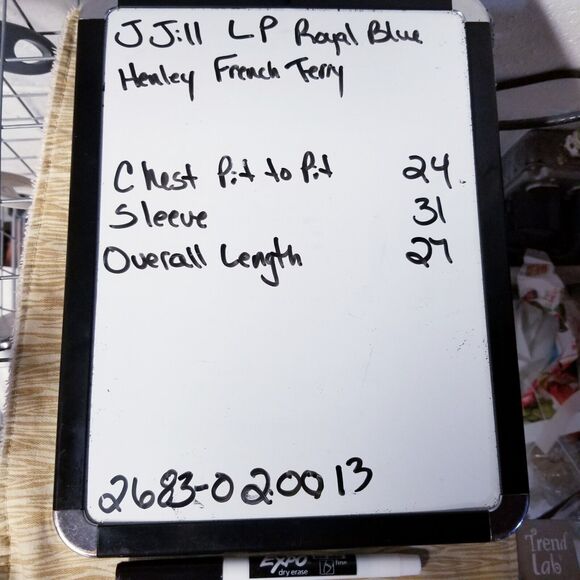 J Jill LP Royal Blue
Henley French Terry
Chest Pit to Pit 24
Sleeve 31
Overall Length 27
2683-020013
EXPO
dry erase fine
Trend
Lab